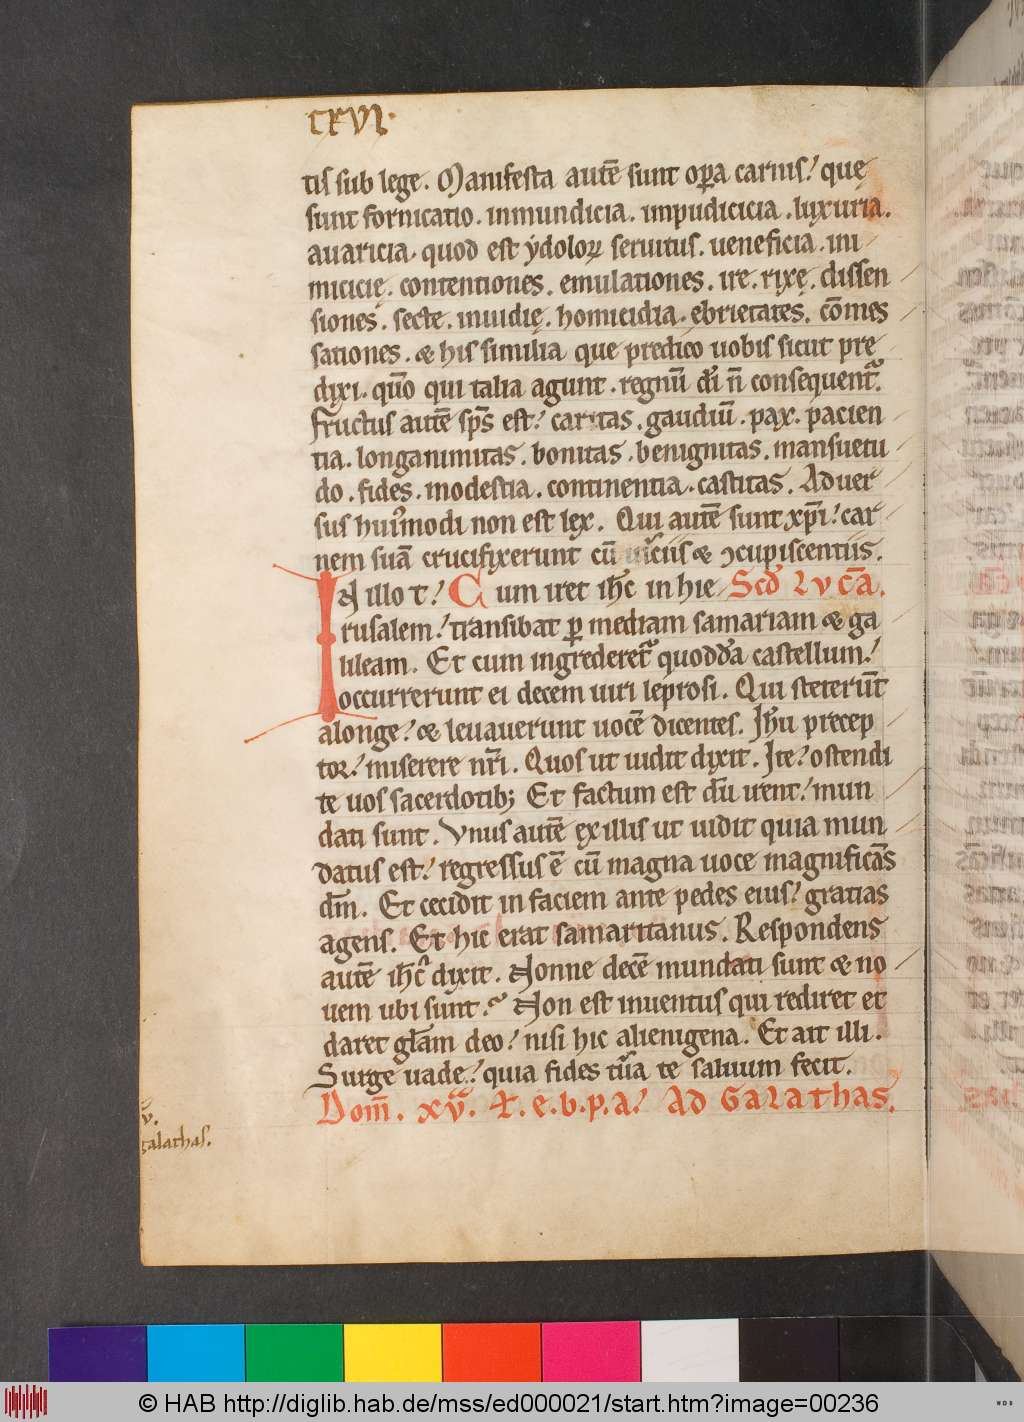 cxvi.
tis sub lege. Manifesta autē sunt opera carnis! quę
sunt fornicatio. inmundicia. impudicicia. luxuria.
auaricia. quod est ẏdoloꝝ seruitus. ueneficia. ini
micicię. contentiones. emulationes. ire. rixę. dissen
siones. secte. inuidię. homicidia. ebrietates. cōmes
sationes. & his similia que predico uobis sicut pre
dixi. qm̄o qui talia agunt. regnū dī n̄ consequent̄.
Fructus autē sps̄ est! caritas. gaudiū. pax. pacien
tia. longanimitas. bonitas. benignitas. mansuetu
do. fides. modestia. continentia. castitas. Aduer
sus hui᷒modi non est lex. Qui autē sunt xp̄i! car
nem suā crucifixerunt cū uiciis & ꝯcupiscentiis.
IN illo t! Cum iret ih̄c in hie Scd̄ Lucā.
rusalem! transibat ꝑ mediam samariam & ga
lileam. Et cum ingrederet̄ quodd̄a castellum!
occurrerunt ei decem uiri leprosi. Qui steterūt
alonge! & leuauerunt uocē dicentes. Ih̄u precep
tor! miserere nr̄i. Quos ut uidit dixit. Ite! ostendi
te uos sacerdotib; Et factum est dū irent! mun
dati sunt. Vnus autē ex illis ut uidit quia mun
datus est! regressus ē cū magna uoce magnificās
dm̄. Et cecidit in faciem ante pedes eius! gratias
agens. Et hic erat samaritanus. Respondens
autē ih̄c dixit. Nonne decē mundati sunt & no
uem ubi sunt? Non est inuentus qui rediret et
daret glām deo! nisi hic alienigena. Et ait illi.
Surge uade! quia fides tūa te saluum fecit.
Dom̄. xv. L. e. b. p. a! Ad Galathas.
v.
galathas.
© HAB http://diglib.hab.de/mss/ed000021/start.htm?image=00236